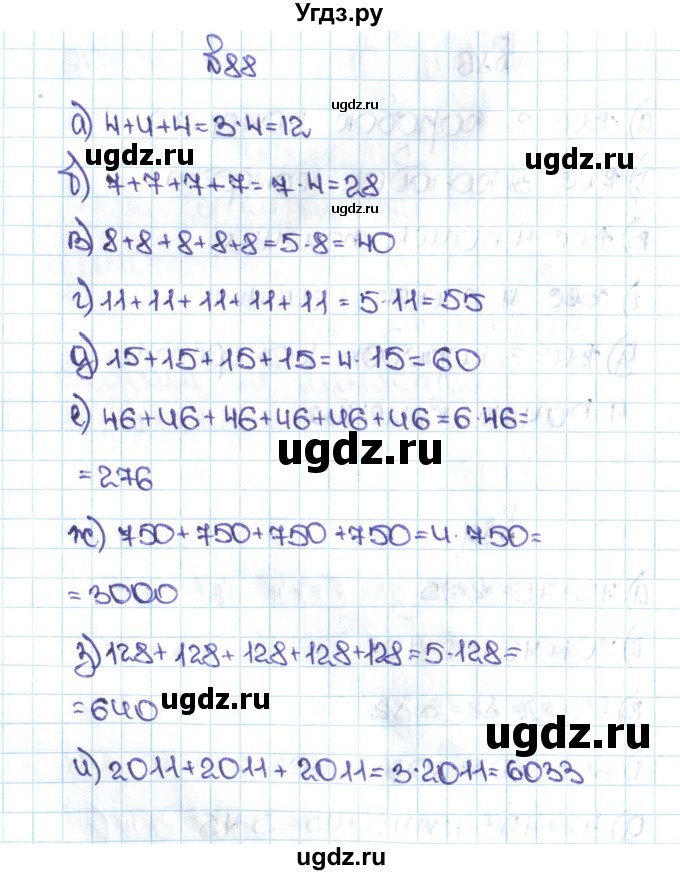 Угдз.ру
№88
ugdz.ru
а) 4+4+4=3·4=12
ugdz.ru
ugdz.ru
б) 7+7+7+7=7·4=28
ugdz.ru
в) 8+8+8+8+8=5·8=40
г) 11+11+11+11+11=5·11=55
д) 15+15+15+15=4·15=60
е) 46+46+46+46+46+46=6·46=
ugdz.ru
=276
ugdz.ru
ж) 750+750+750+750=4·750=
=3000
з) 128+128+128+128+128=5·128=
=640
ugdz.ru
ugdz.ru
и) 2011+2011+2011=3·2011=6033
ugdz.ru